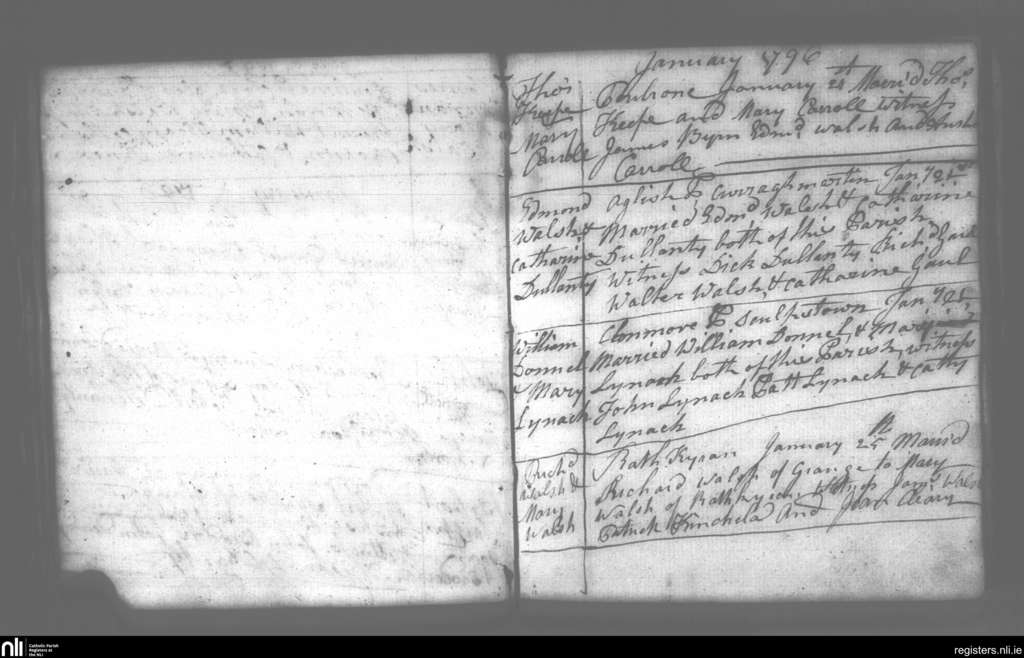 January 1796
Thos
Keefe Poulrone January 21st Maer'd Thos
Mary Keefe and Mary Carroll witness
Carroll James Byrn Edmd walsh And
Carroll
Edmond Aglish P Curraghmartin Jany 21st
Walsh & Married Edmd Walsh & Catharine
Catharine Dullanty both of this Parish
Dullanty Witness Dick Dullanty Richd Gaul
Walter Walsh, & Catharine Gaul
William Clonmore P Sculpstown Jany 21st
Donnel Married William Donnel, & Mary
& Mary Lynach both of this Parish, witness
Lynach John Lynach Patt Lynach & Catty
Lynach
Richd Rath Kyran January 25th Marrid
Walsh & Richard Walsh of Grange to Mary
Mary Walsh of Witness Jams Walsh
Walsh Patrick And Joan Cleary
nli
Catholic Parish
Registers at
the NLI
registers.nli.ie